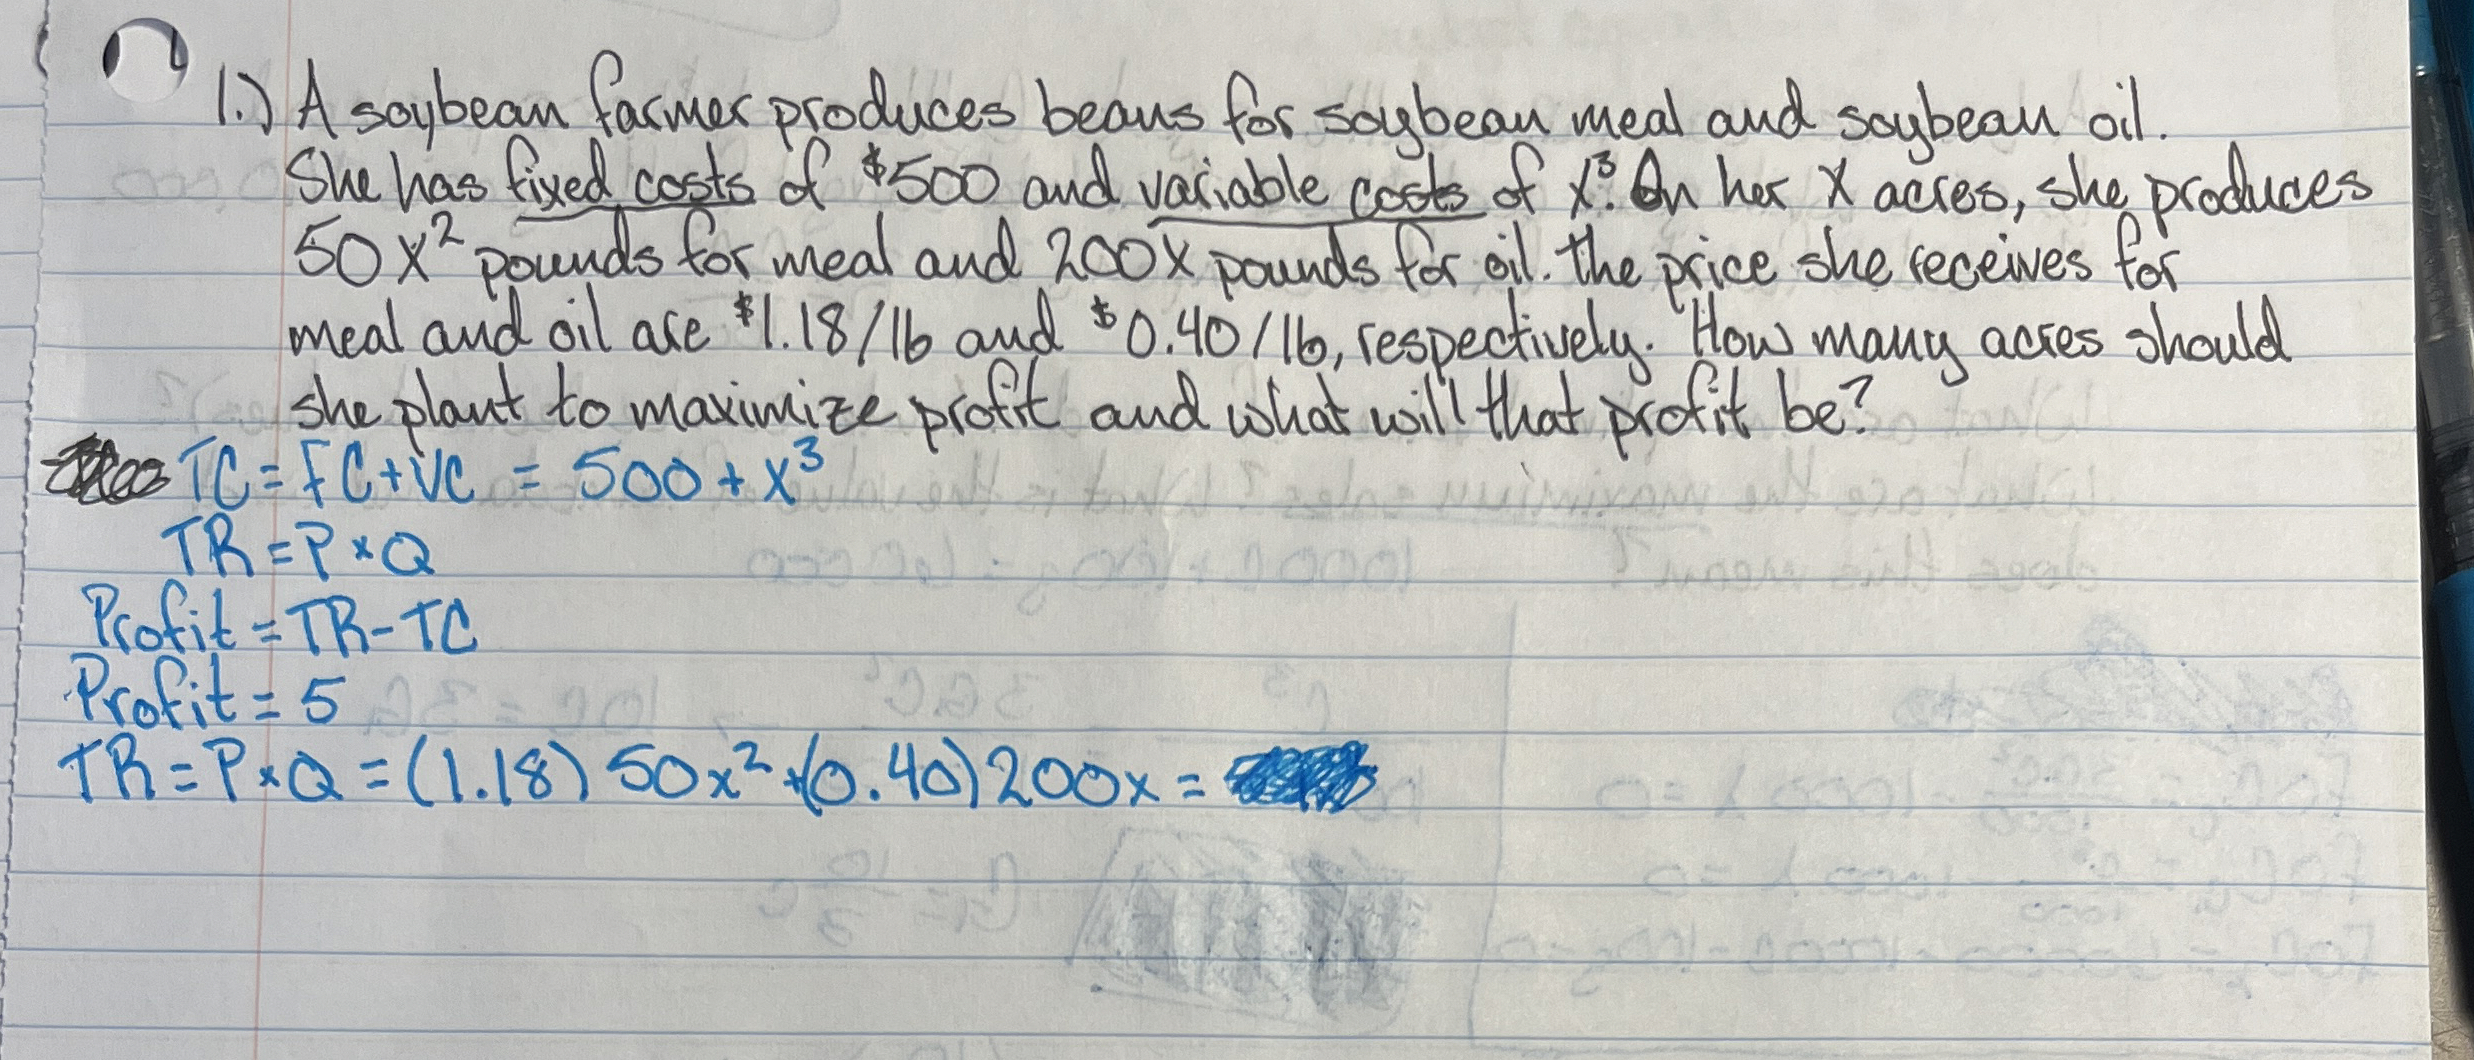 1.) A soybean farmer produces beans for soybean meal and soybean oil.
She has fixed costs of $500 and variable costs of x³. On her x acres, she produces
50x² pounds for meal and 200x pounds for oil. The price she receives for
meal and oil are $1.18/lb and $0.40/lb, respectively. How many acres should
she plant to maximize profit and what will that profit be?
TC = FC + VC = 500 + x³
TR = P × Q
Profit = TR - TC
Profit = 5
TR = P × Q = (1.18) 50x² + (0.40) 200x =